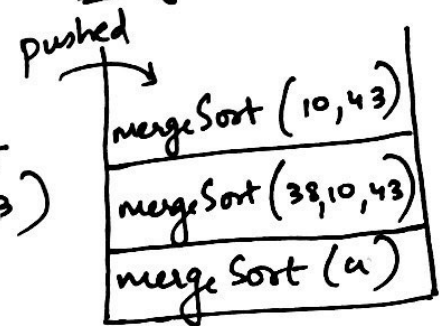 pushed
mergeSort (10,43)
3)
mergeSort (38,10,43)
merge Sort (a)